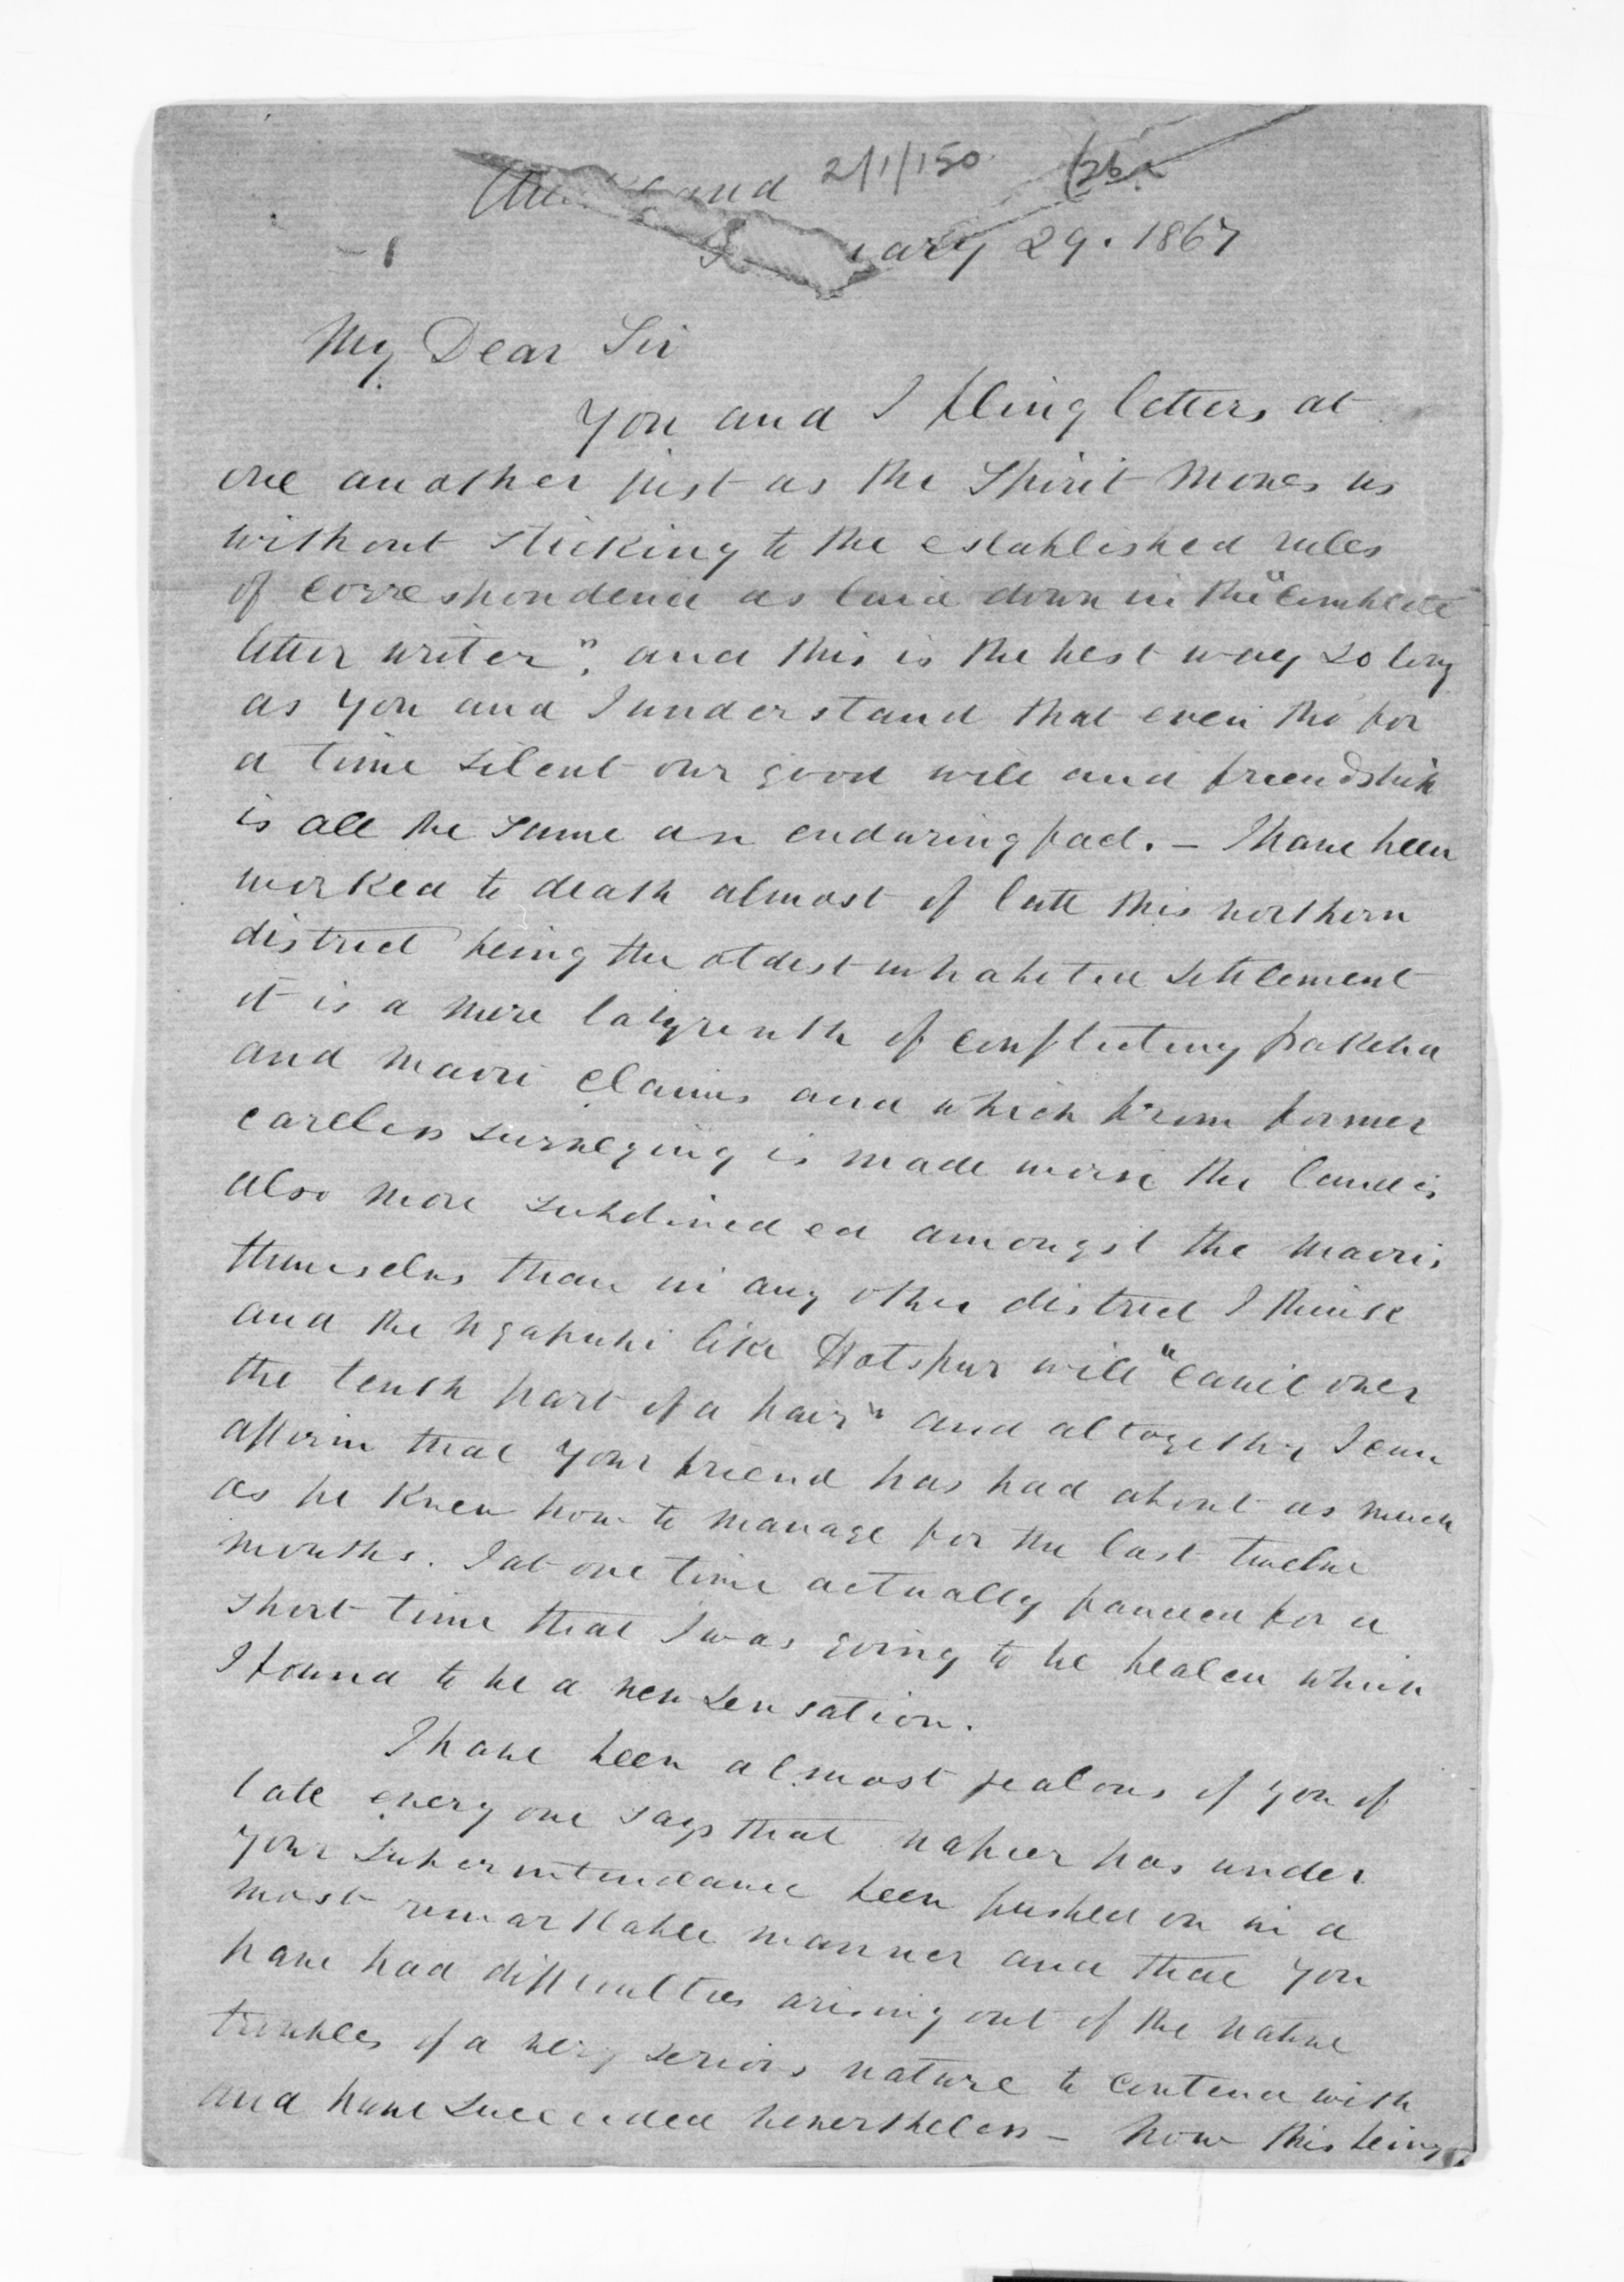 Auckland 2/1/150 126
January 29. 1867
My Dear Sir
You and I fling letters at
one another just as the Spirit moves us
without sticking to the established rules
of correspondence as laid down in the "complete
letter writer", and this is the best way so long
as you and I understand that even tho for
a time silent our good will and friendship
is all the same an enduring fact. - I have been
worked to death almost of late this northern
district being the oldest inhabited settlement
it is a mere labyrinth of conflicting pakeha
and maori claims and which from former
careless surveying is made worse the land is
also more subdivided amongst the maoris
themselves than in any other district I think
and the ngapuhi like Hotspur will "cavil over
the tenth part of a hair" and altogether I can
affirm that your friend has had about as much
as he knew how to manage for the last twelve
months. I at one time actually fancied for a
short time that I was going to be bealed which
I found to be a new sensation.
I have been almost jealous of you of
late every one says that napier has under
your superintendance been pushed on in a
most remarkable manner and that you
have had difficulties arising out of the native
troubles of a very serious nature to contend with
and have succeeded nevertheless - now this being